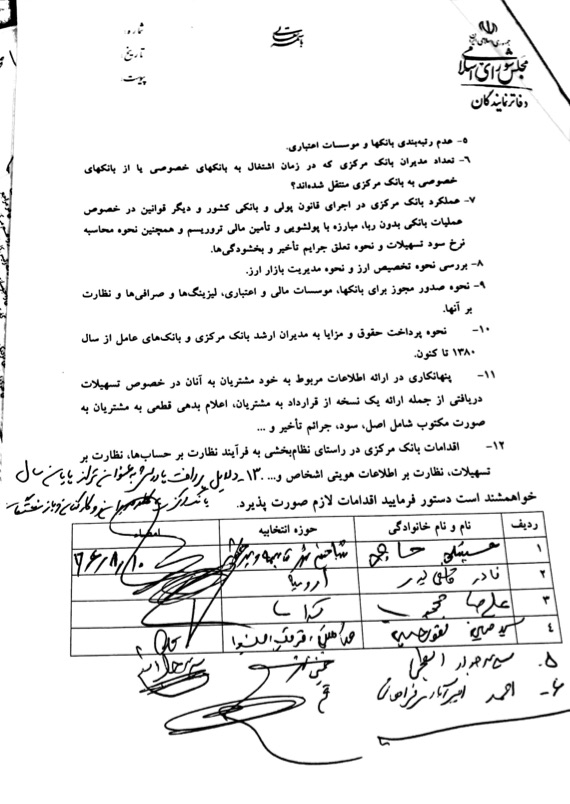 باسمه تعالی
جمهوری اسلامی ایران
مجلس شورای اسلامی
دفاتر نمایندگان
شماره:
تاریخ:
پیوست:
۵- عدم رتبه‌بندی بانکها و موسسات اعتباری.
۶- تعداد مدیران بانک مرکزی که در زمان اشتغال به بانکهای خصوصی یا از بانکهای
خصوصی به بانک مرکزی منتقل شده‌اند؟
۷- عملکرد بانک مرکزی در اجرای قانون پولی و بانکی کشور و دیگر قوانین در خصوص
عملیات بانکی بدون ربا، مبارزه با پولشویی و تأمین مالی تروریسم و همچنین نحوه محاسبه
نرخ سود تسهیلات و نحوه تعلق جرایم تأخیر و بخشودگی‌ها.
۸- بررسی نحوه تخصیص ارز و نحوه مدیریت بازار ارز.
۹- نحوه صدور مجوز برای بانکها، موسسات مالی و اعتباری، لیزینگ‌ها و صرافی‌ها و نظارت
بر آنها.
۱۰- نحوه پرداخت حقوق و مزایا به مدیران ارشد بانک مرکزی و بانک‌های عامل از سال
۱۳۸۰ تا کنون.
۱۱- پنهانکاری در ارائه اطلاعات مربوط به خود مشتریان به آنان در خصوص تسهیلات
دریافتی از جمله ارائه یک نسخه از قرارداد به مشتریان، اعلام بدهی قطعی به مشتریان به
صورت مکتوب شامل اصل، سود، جرائم تأخیر و ...
۱۲- اقدامات بانک مرکزی در راستای نظام‌بخشی به فرآیند نظارت بر حساب‌ها، نظارت بر
تسهیلات، نظارت بر اطلاعات هویتی اشخاص و... ۱۳- دلایل پرداخت پاداش به عنوان تراز پایان سال
بانک مرکزی به مدیران و کارکنان
خواهشمند است دستور فرمایید اقدامات لازم صورت پذیرد.
ردیف نام و نام خانوادگی حوزه انتخابیه امضاء
۱ حسینعلی حاجی شاهین شهر
۲ نادر قاضی‌پور ارومیه
۳ علیرضا
۴
۵-
۶- احمد امیرآبادی فراهانی قم